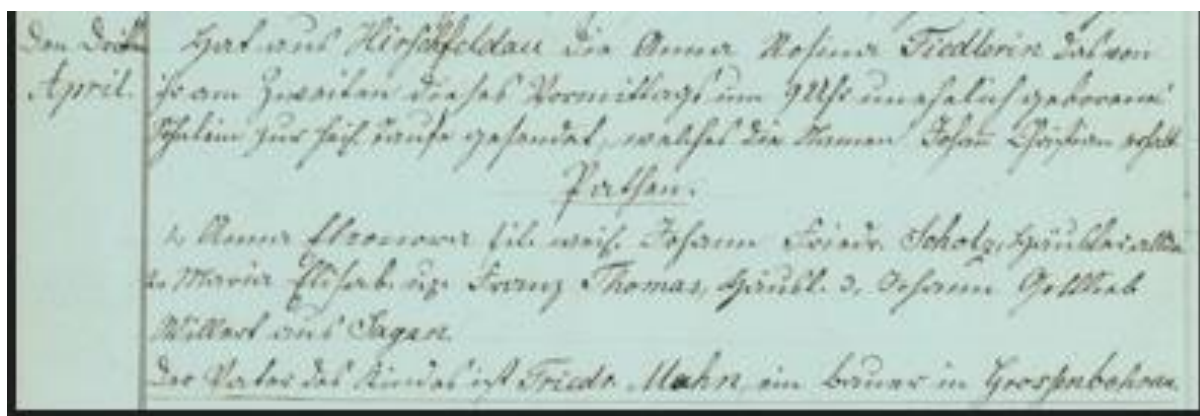 Den Dritten Hat aus Hirschfeldau die Anna Rosina Fiedlerin das von
April. ihr am Zweiten dieses Vormittags um 9 Uhr unehelich geborene
Söhnlein zur heil. Taufe gesendet, welches die Namen Johañ Christian erhalt
Pathen.
1, Anna Eleonora fil. weil. Johann Friedr. Scholz, Häusler allda
2, Maria Elisab. ux. Franz Thomas, Häusl. 3, Johann Gottlieb
Willert aus Sagan.
Der Vater des Kindes ist Friedr. Mahn, ein Bauer in